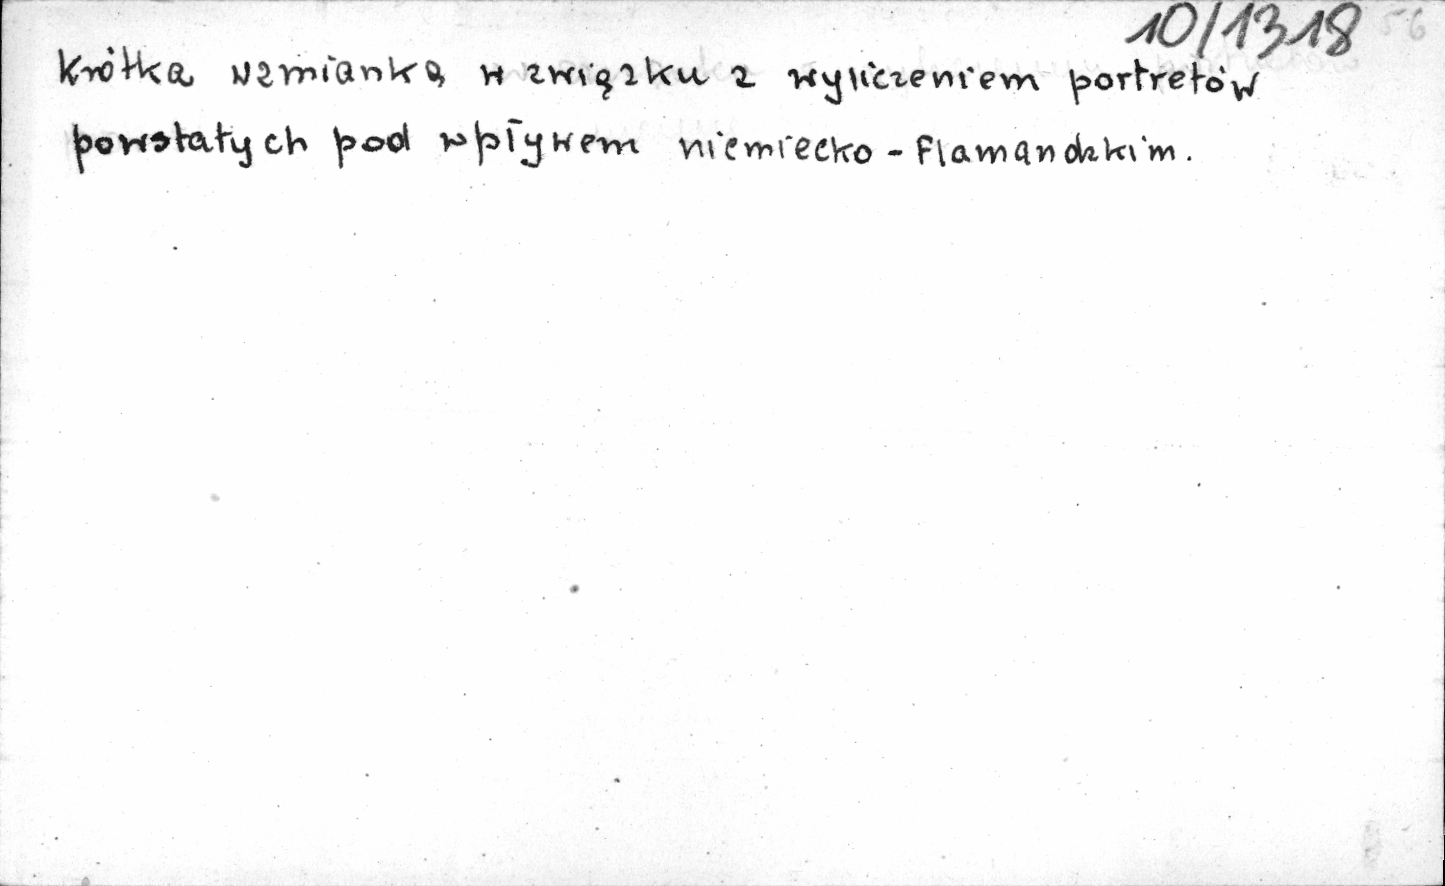 10/1318
Krótka wzmianka w związku z wyliczeniem portretów
powstałych pod wpływem niemiecko - flamandzkim.